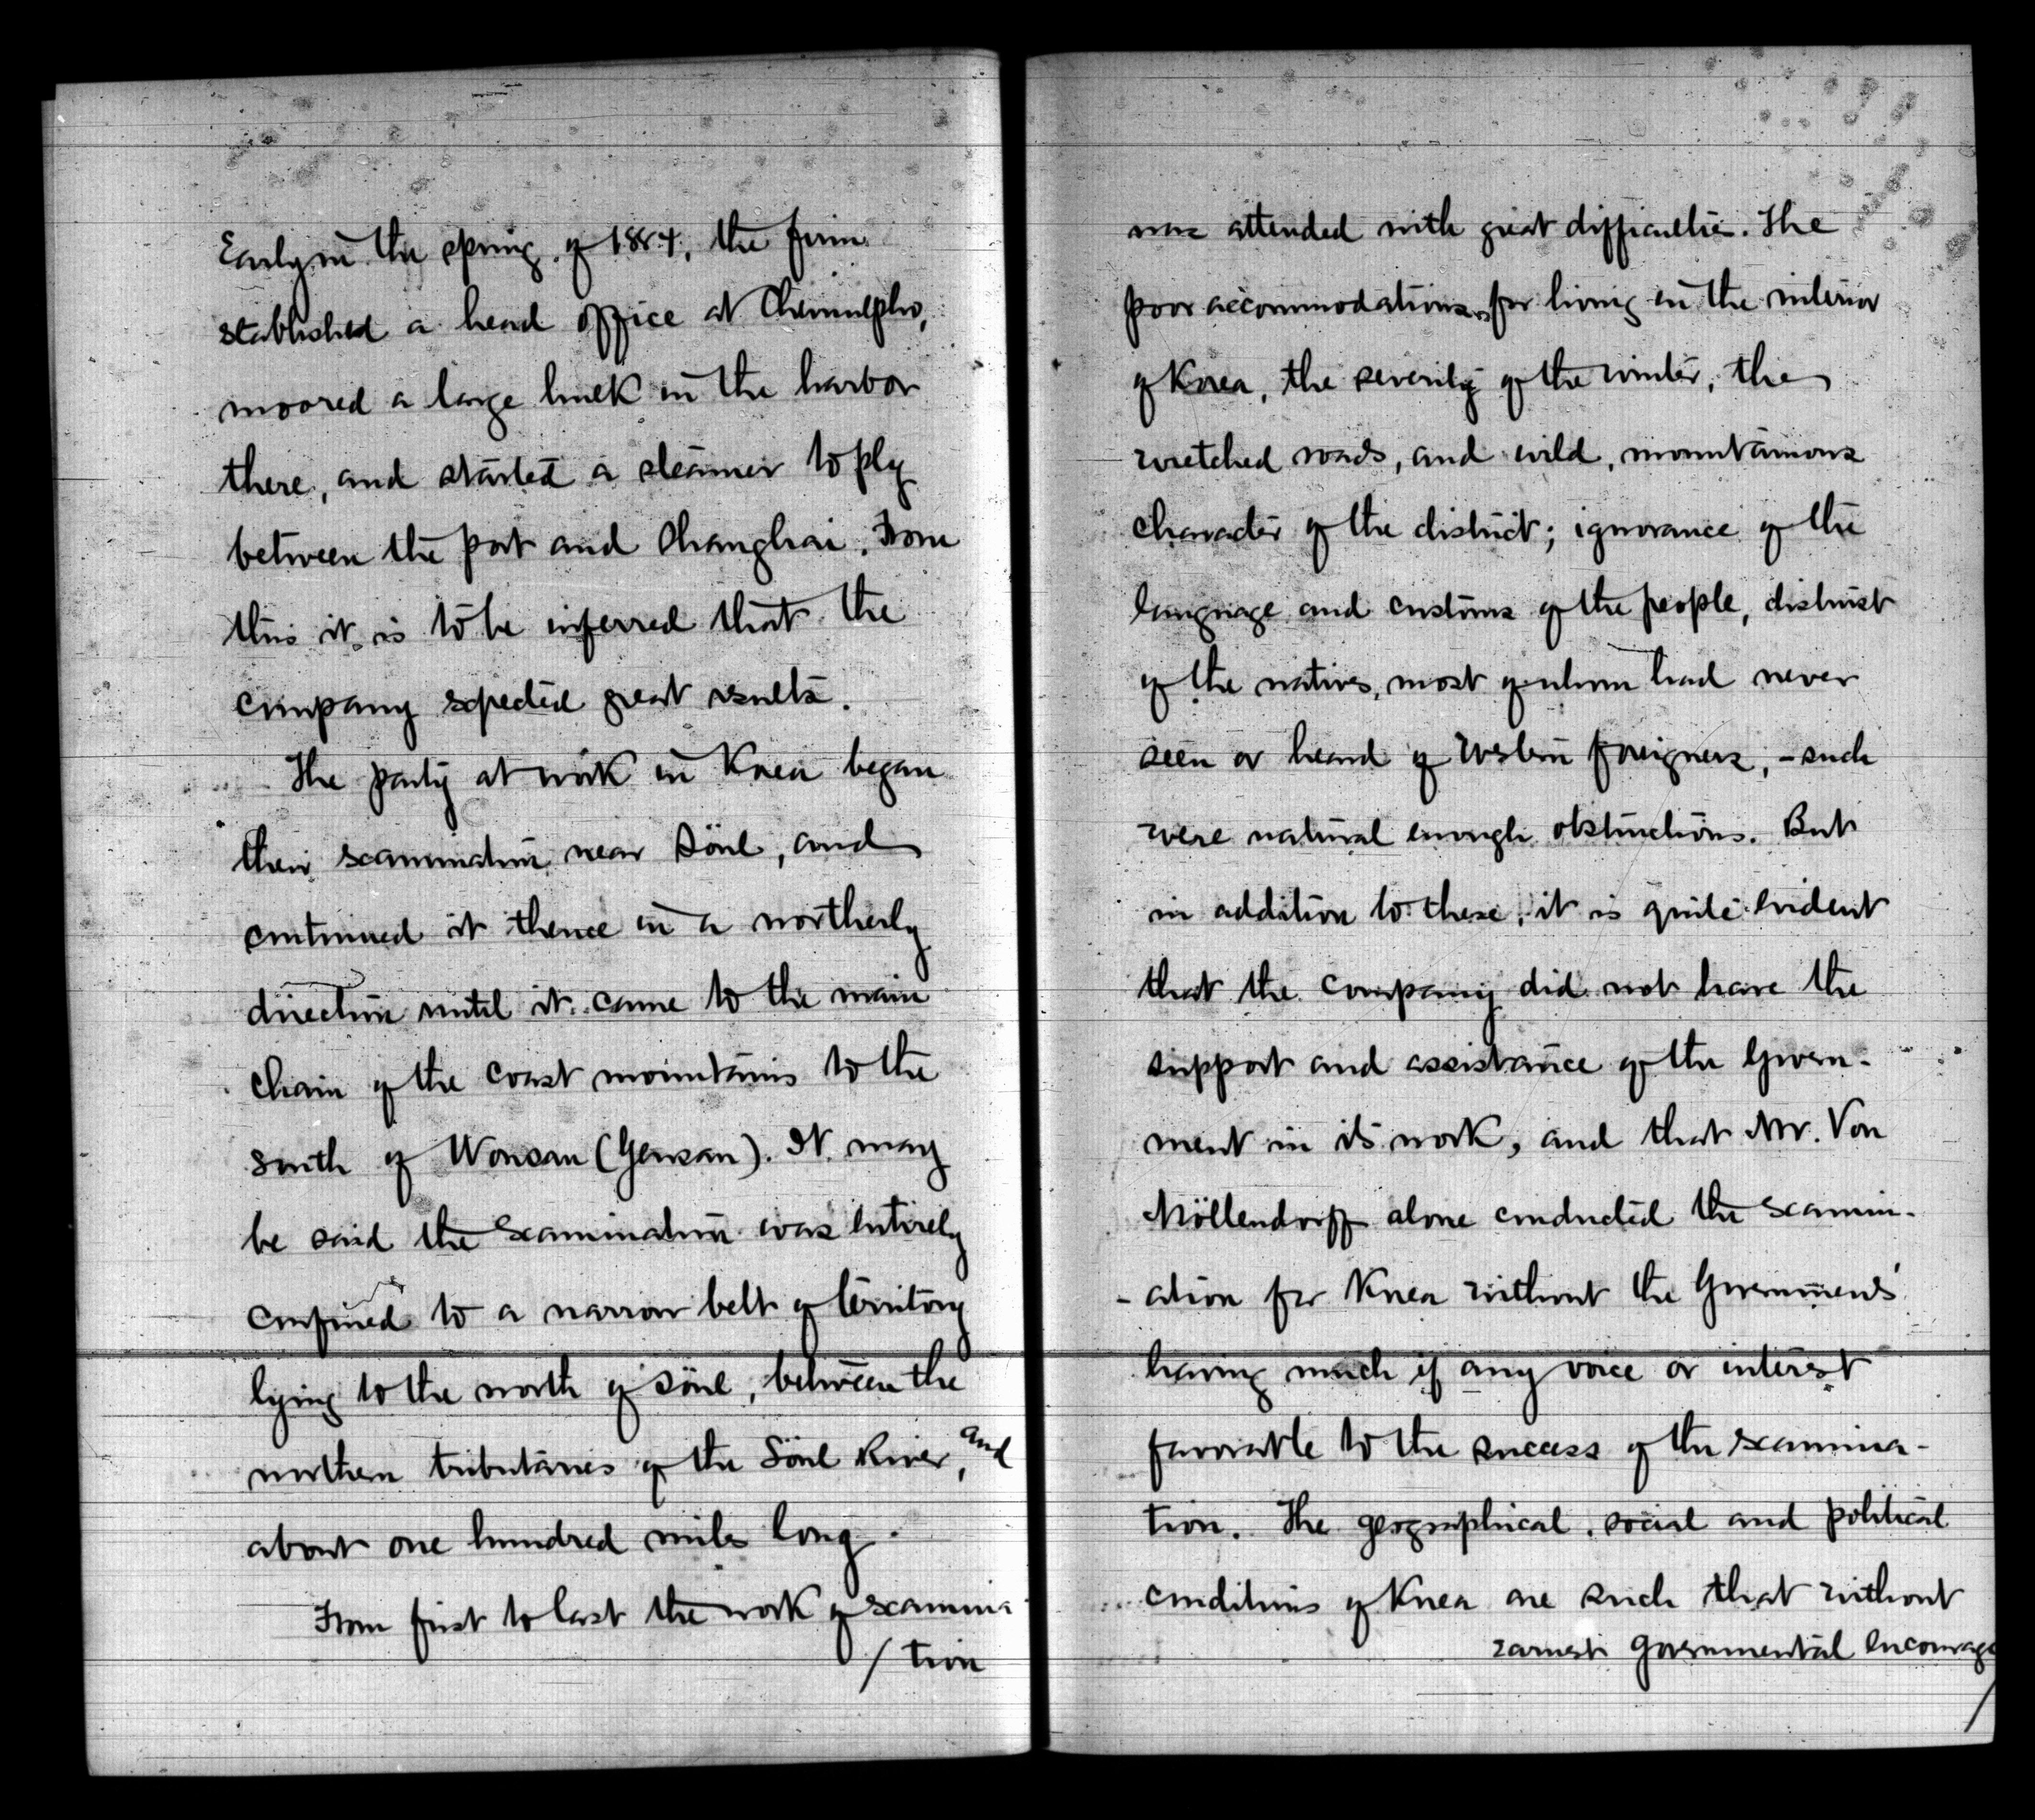 Early in the spring of 1884, the firm
established a head office at Chemulpho,
moored a large hulk in the harbor
there, and started a steamer to ply
between the port and Shanghai. From
this it is to be inferred that the
company expected great results.
The party at work in Korea began
their examination near Söul, and
continued it thence in a northerly
direction until it came to the main
chain of the coast mountains to the
south of Wonsan (Gensan). It may
be said the examination was entirely
confined to a narrow belt of territory
lying to the north of Söul, between the
northern tributaries of the Söul River, and
about one hundred miles long.
From first to last the work of examina-
/ tion
was attended with great difficulties. The
poor accommodations for living in the interior
of Korea, the severity of the winter, the
wretched roads, and wild, mountainous
character of the district; ignorance of the
language and customs of the people, distrust
of the natives, most of whom had never
seen or heard of Western foreigners, - such
were natural enough obstructions. But
in addition to these, it is quite evident
that the company did not have the
support and assistance of the Govern-
ment in its work, and that Mr. Von
Möllendorff alone conducted the examin-
- ation for Korea without the Governments'
having much if any voice or interest
favorable to the success of the examina-
tion. The geographical, social and political
conditions of Korea are such that without
earnest governmental encourage
/